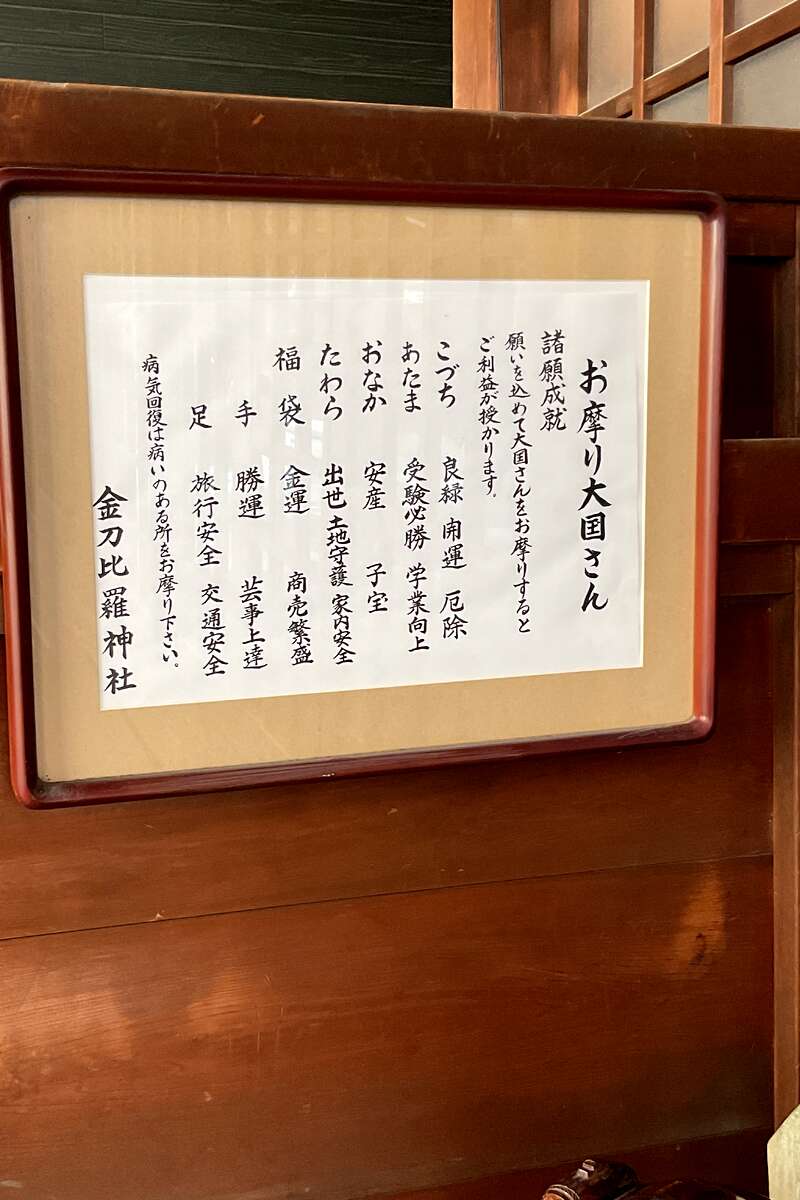 お摩り大国さん
諸願成就
願いを込めて大国さんをお摩りすると
ご利益が授かります。
こづち 良縁 開運 厄除
あたま 受験必勝 学業向上
おなか 安産 子宝
たわら 出世 土地守護 家内安全
福袋 金運 商売繁盛
手 勝運 芸事上達
足 旅行安全 交通安全
病気回復は病いのある所をお摩り下さい。
金刀比羅神社